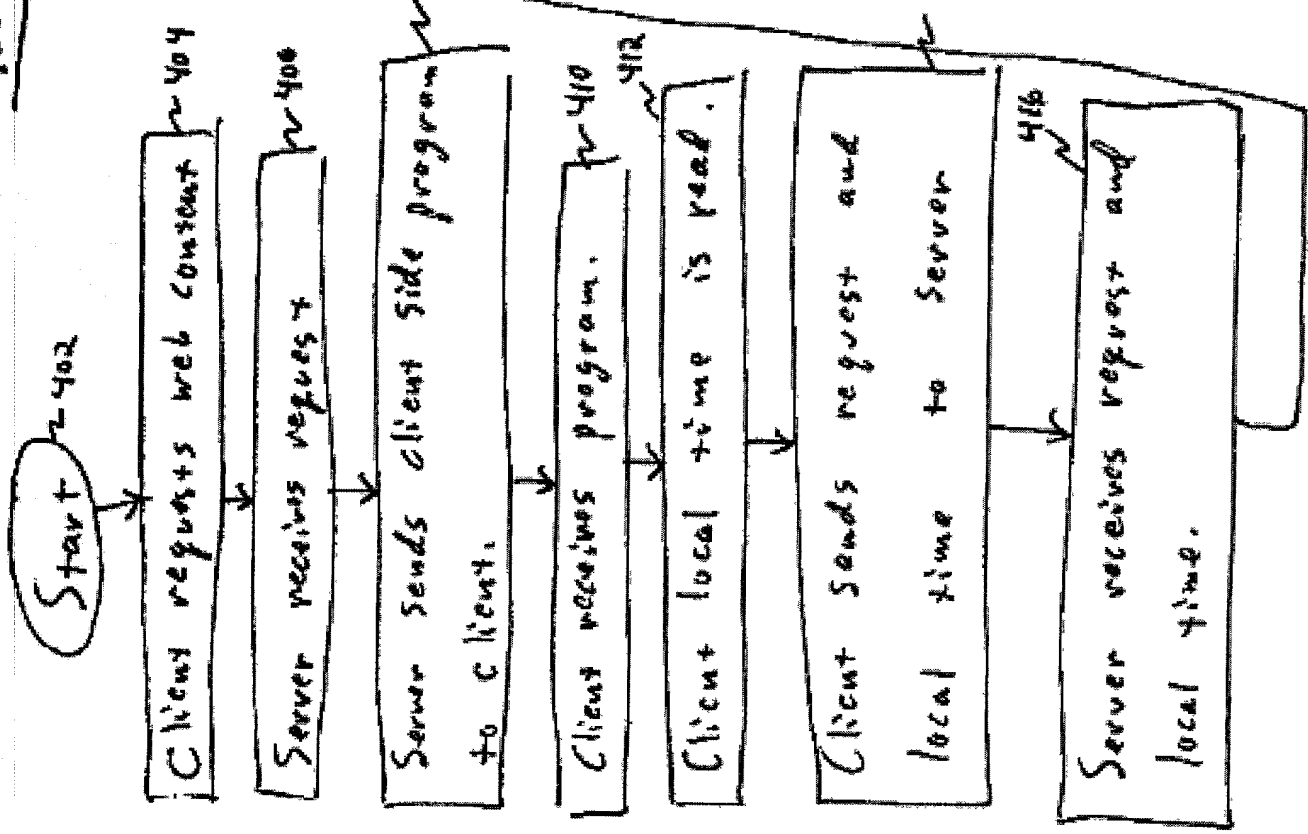 Start
402
Client requests web content
404
Server receives request
406
Server sends client side program
to client.
Client receives program.
410
Client local time is read.
412
Client sends request and
local time to server
Server receives request and
local time.
416